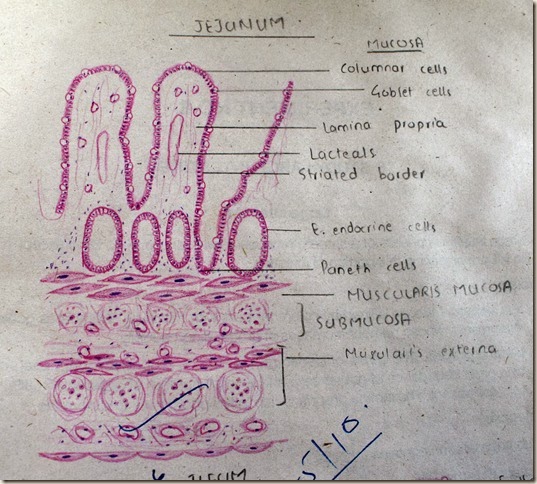 JEJUNUM
MUCOSA
Columnar cells
Goblet cells
Lamina propria
Lacteals
Striated border
E. endocrine cells
Paneth cells
MUSCULARIS MUCOSA
SUBMUCOSA
Muscularis externa
5/10.
ILEUM